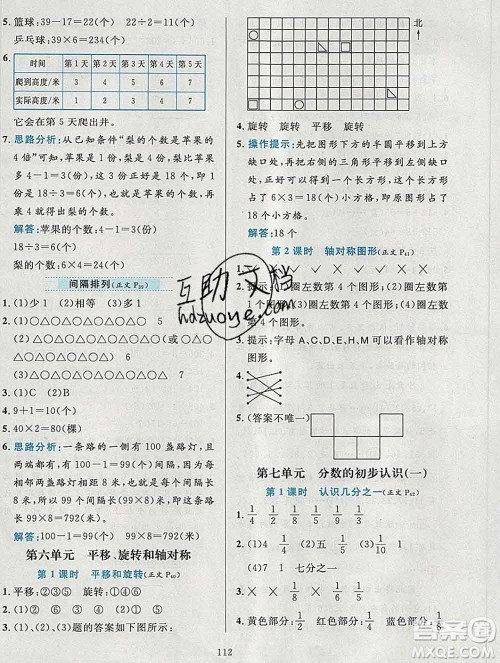 5. 篮球:39-17=22(个)　22÷2=11(个)
乒乓球:39×6=234(个)
6.
时间 第1天 第2天 第3天 第4天 第5天
爬到高度/米 3 4 5 6 7
实际高度/米 1 2 3 4
它会在第5天爬出井。
7. 思路分析:从已知条件“梨的个数是苹果的
4倍”可知,苹果是1份,梨的个数就是这样的
4份,梨比苹果多4-1=3(份),这3份正好
是18个,可知1份是18÷3=6(个),也就是
苹果有6个,梨有6×4=24(个)。
解答:苹果的个数:4-1=3(份)
18÷3=6(个)
梨的个数:6×4=24(个)
间隔排列(正文P39)
1. (1)少1　(2)相等　(3)多1
2. (1)○△○△○△○△○△○
(2)○△○△○△○△○△○△
(3)△○△○△○△○△○△○△
3. (1)C　(2)B
4. 9+1=10(个)
5. 40×2=80(棵)
6. 思路分析:一条路的一侧有100盏路灯,且
两端都有,则这一侧一共有100-1=99(个)
间隔。每个间隔长8米,99个间隔长99×8=
792(米),所以这条路长792米。
解答:100-1=99(个)　99×8=792(米)
第六单元　平移、旋转和轴对称
第1课时　平移和旋转(正文P40)
1. 平移:②③⑤　旋转:①④⑥
2. (1)①②③⑤　(2)④⑥
3. (1)(2)(3)的答案如下图所示:
北
4. 旋转　旋转　平移　旋转
5. 操作提示:先把图形下方的半圆平移到上方
缺口处,再把右侧的三角形平移到左侧缺口
处,正好转化成一个长方形,长方形占了18
个小方格。
解答:18个
第2课时　轴对称图形(正文P41)
1. × × √ × √ √
2. (1)圈左数第4个图形　(2)圈左数第4个图形
(3)圈左数第2个图形。
3. 提示:字母A、C、D、E、H、M可以看作轴对称
图形。
4.
5. (答案不唯一)
第七单元　分数的初步认识(一)
第1课时　认识几分之一(正文P42)
1. 1/4　1/2　1/8　1/3　1/9　1/5
2. (1)4　(2)五　1/5　五分之一
(3)7　1/7　七分之一
3. × √ × × √
4. 黄色部分:1/4　红色部分:1/2　绿色部分:1/8
蓝色部分:1/8
112
互助文档
hdzuoye.com
答案圈
MXQE.COM